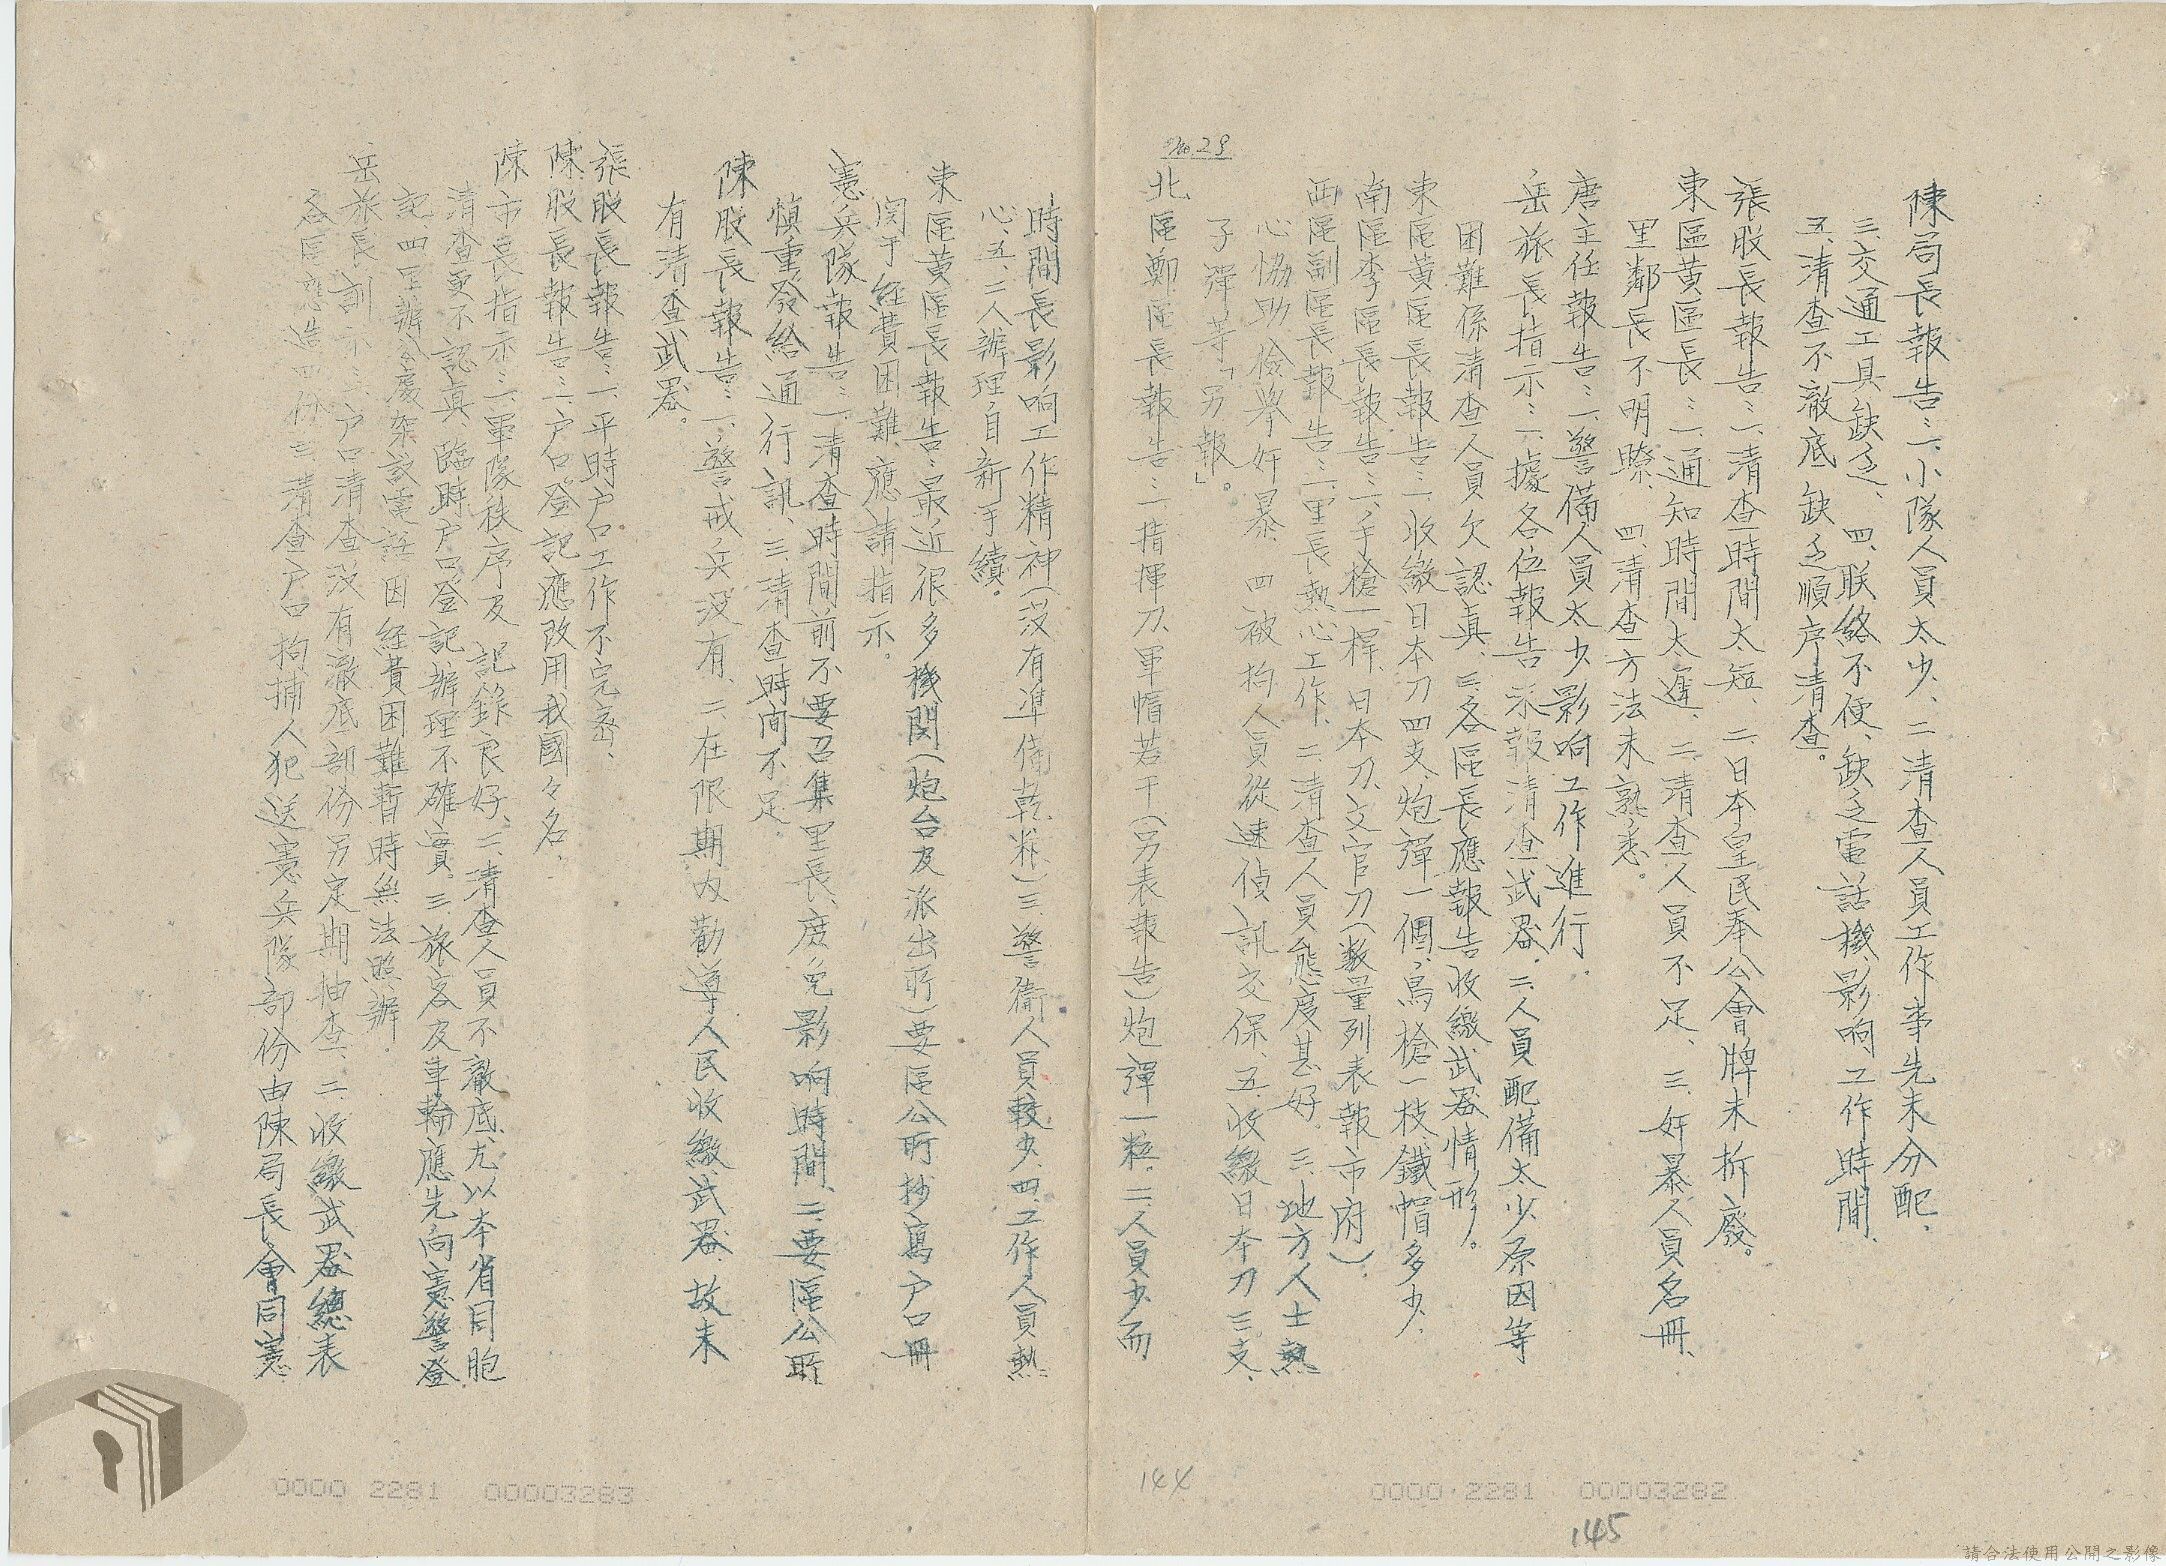 陳局長報告：一、小隊人員太少、二清查人員工作事先未分配、
三、交通工具缺乏、四、联絡不便、缺乏電話機、影响工作時間、
五、清查不澈底缺乏順序清查。
張股長報告：一、清查時間太短、二、日本皇民奉公會牌未拆廢。
東區黃區長：一、通知時間太遲、二、清查人員不足、三、奸暴人員名冊、
里鄰長不明瞭、四、清查方法未熟悉。
唐主任報告：一、警備人員太少影响工作進行。
岳旅長指示：一、據各位報告示報清查武器、二、人員配備太少原因等
困難係清查人員欠認真、三各區長應報告收繳武器情形。
東區黃區長報告：一、收繳日本刀四支、炮彈一個、鳥槍一枝、鐵帽多少、
南區李區長報告：一、手槍一桿、日本刀、文官刀（数量列表報市府）
西區副區長報告：一、里長熱心工作、二、清查人員態度甚好。三、地方人士熱
心協助檢舉奸暴、四被拘人員從速偵訊交保、五、收繳日本刀三支、
子彈等「另報」。
No 29
北區鄭區長報告：一、指揮刀、軍帽若干（另表報告）炮彈一粒。二、人員少而
時間長影响工作精神（沒有準備乾粮）三、警衛人員較少、四、工作人員熱
心、五、二人辦理自新手續。
東區黃區長報告：最近很多機関（炮台及派出所）要區公所抄寫户口冊
関于經費困難、應請指示。
憲兵隊報告：一、清查時間前不要召集里長、庶免影响時間、二、要區公所
慎重發給通行訊、三、清查時间不足。
陳股長報告：一、警戒兵沒有、二、在限期內勸導人民收繳武器、故未
有清查武器。
張股長報告：一、平時户口工作不完密、
陳股長報告：一户口登記應改用我國々名、
陳市長指示：一、軍隊秩序及記錄良好、二、清查人員不澈底、尤以本省同胞
清查更不認真、臨時户口登記辦理不確實。三、旅客及車輪應先向憲警登
記、四里辦公處架設電話因經費困難暫時無法照辦。
岳旅長訓示：一、户口清查沒有澈底部份另定期抽查、二、收繳武器總表
各區應造四份三、清查户口拘捕人犯送憲兵隊部份由陳局長會同憲
144
145
0000 2281 00003283
0000 2281 00003282
請合法使用公開之影像